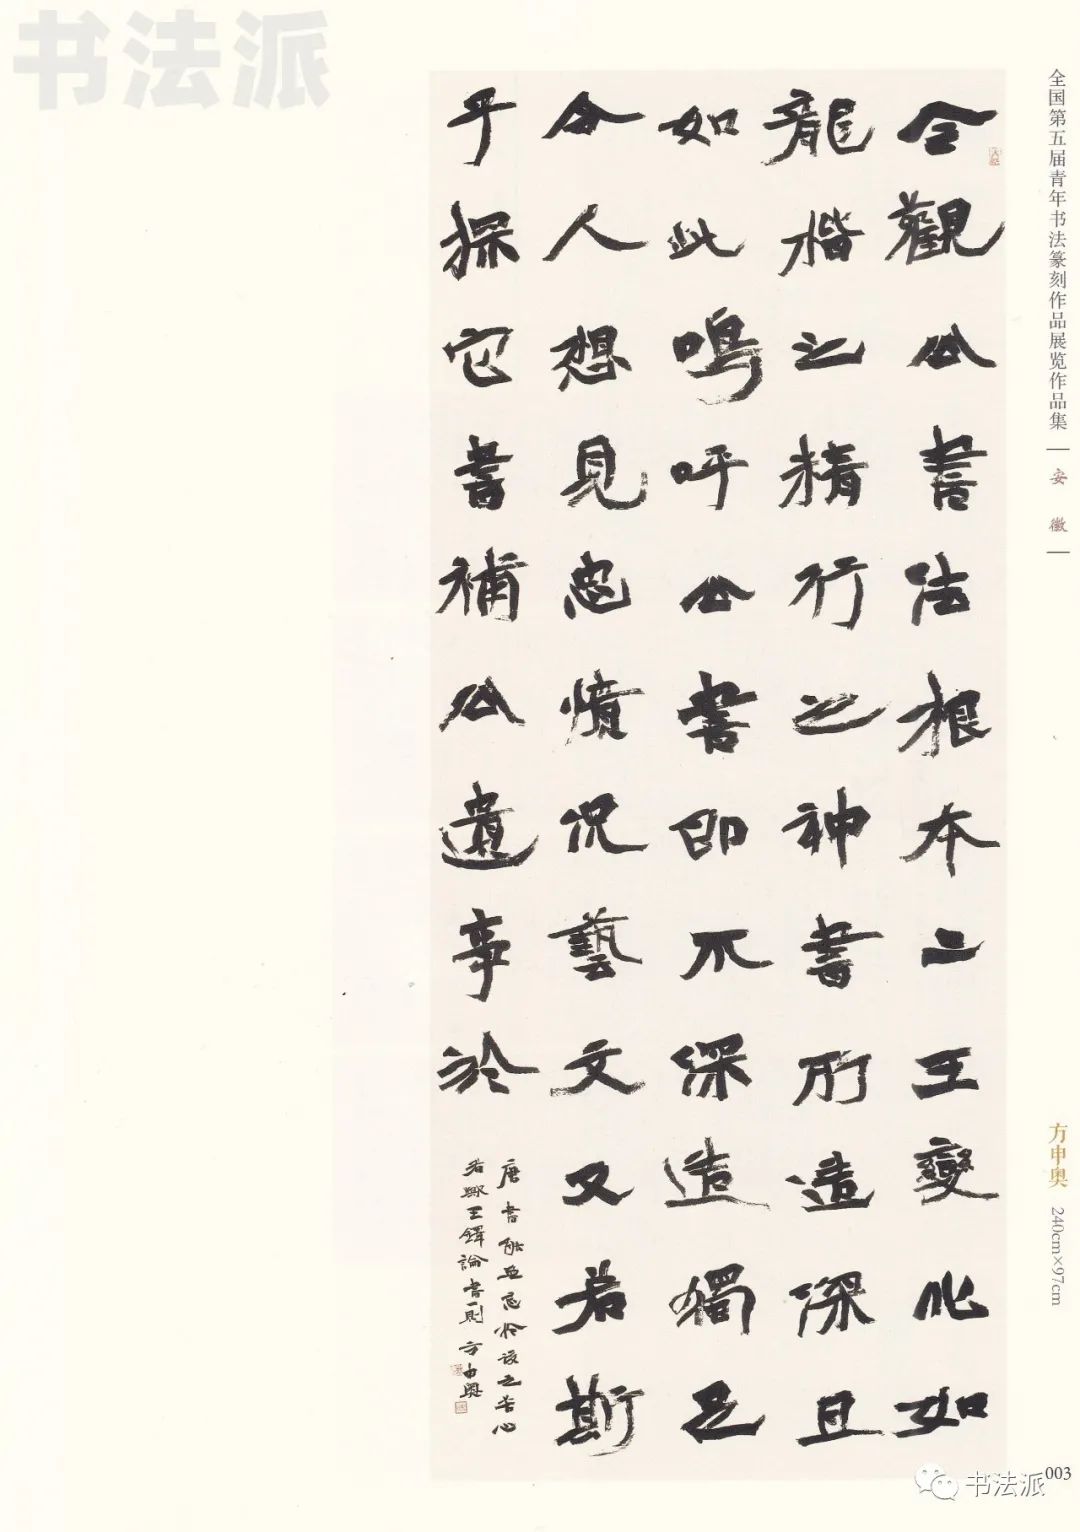 书法派
全国第五届青年书法篆刻作品展览作品集
安徽
方申奥 240cm×97cm
今觀公書法根本二王變化如
龍楷之精行之神書所造深且
如此嗚呼公書即不深造獨足
令人想見忠憤況藝文又若斯
乎探它書補公遺事於
唐書能 該之苦心
者耶王鐸論書一則方申奧
书法派
003